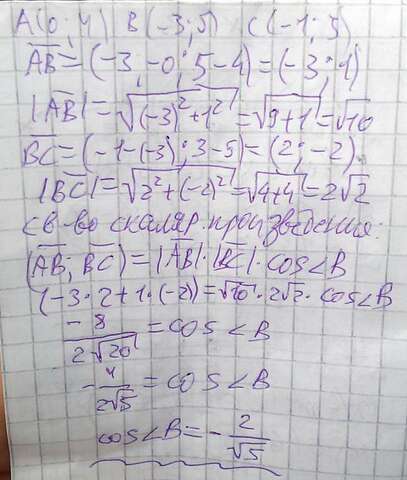 A(0; 4) B(-3; 5) C(-1; 3)
AB = (-3, -0; 5-4) = (-3; 1)
|AB| = √((-3)² + 1²) = √(9+1) = √10
BC = (-1-(-3); 3-5) = (2; -2).
|BC| = √(2² + (-2)²) = √(4+4) = 2√2
св-во скаляр. произведения:
(AB; BC) = |AB| · |BC| · cos∠B
(-3·2 + 1·(-2)) = √10 · 2√2 · cos∠B
-8/(2√20) = cos∠B
-4/(2√5) = cos∠B
cos∠B = -2/√5